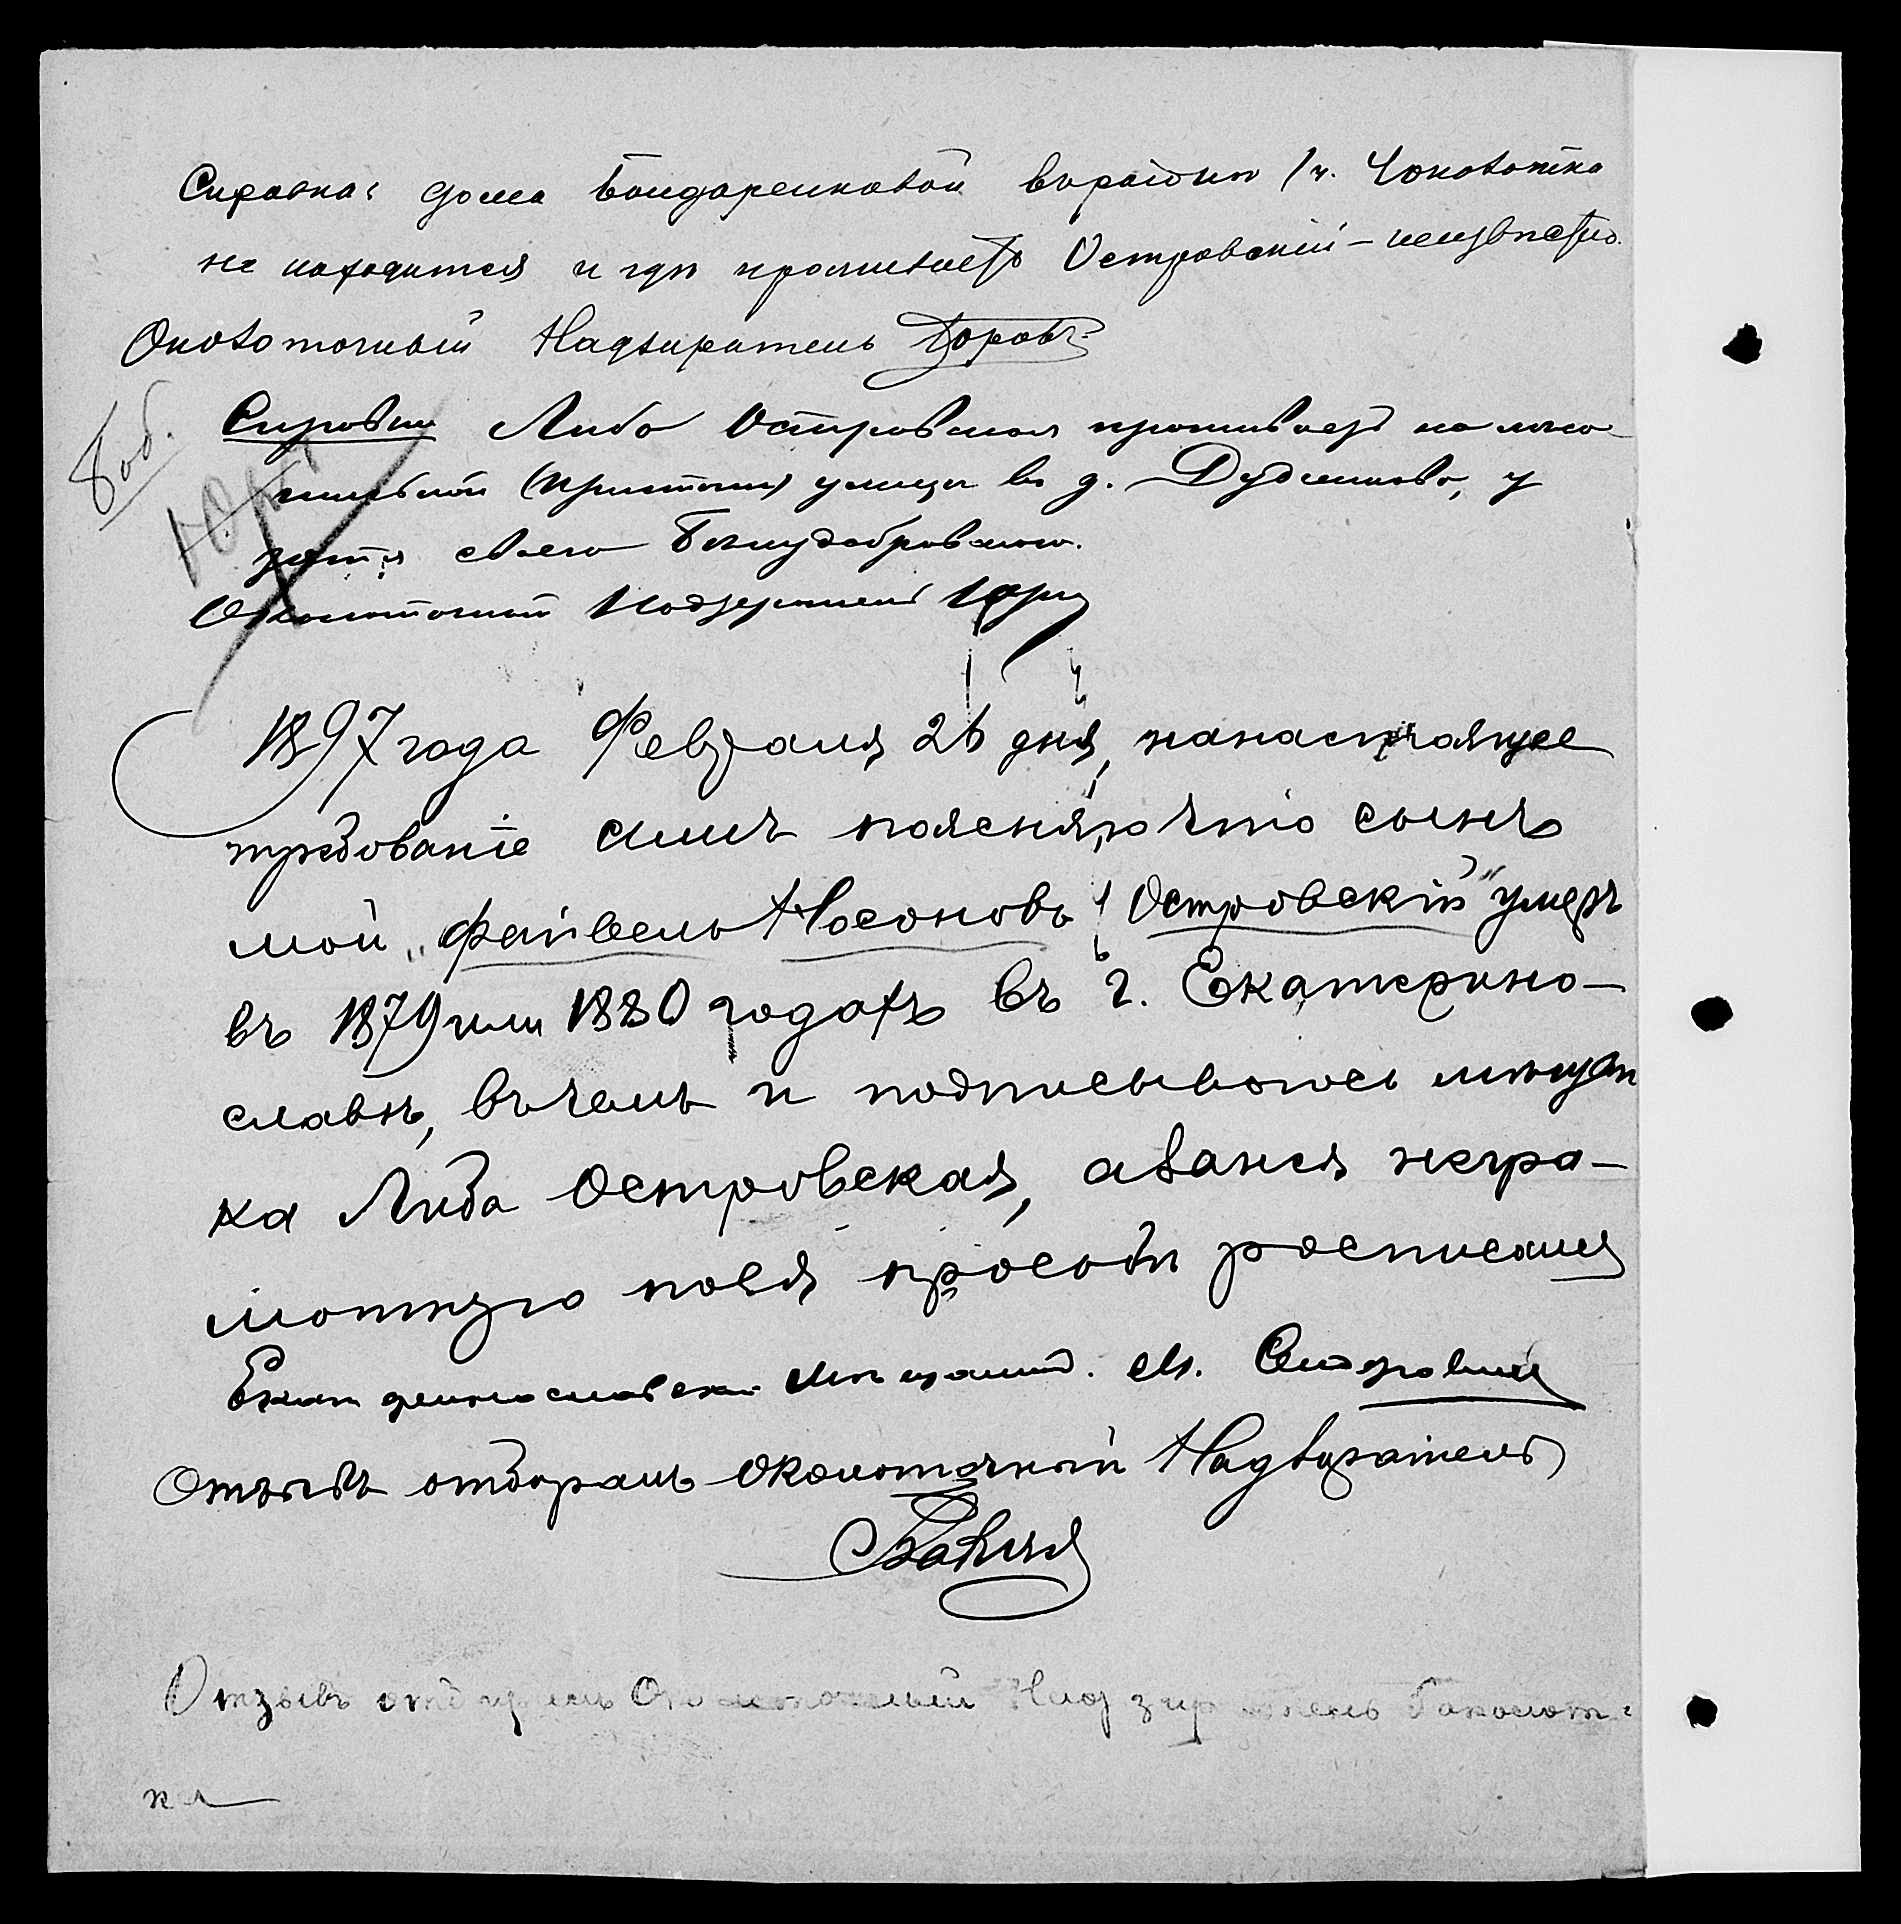 Справка: дома Бондаренковой въ районѣ 1 ч. 4 околотка
не находится и гдѣ проживаетъ Островскій – неизвѣстно.
Околоточный Надзиратель
8 об.
Справка Либа Островская проживаетъ на
улицѣ въ д. у
зятя своего
Околоточный Надзиратель
1897 года Февраля 26 дня, на настоящее
требованіе симъ поясняю что сынъ
мой „Файвель Носоновъ Островскій" умеръ
въ 1879 или 1880 годахъ въ г. Екатерино-
славѣ, въ чемъ и подписываюсь мѣщан
ка Либа Островская, а за нея негра-
мотную по ея просьбѣ росписался
Екатеринославск. Мѣщанинъ. М.
Отзывъ отбиралъ околоточный Надзиратель
Отзывъ отбиралъ Околоточный Надзиратель